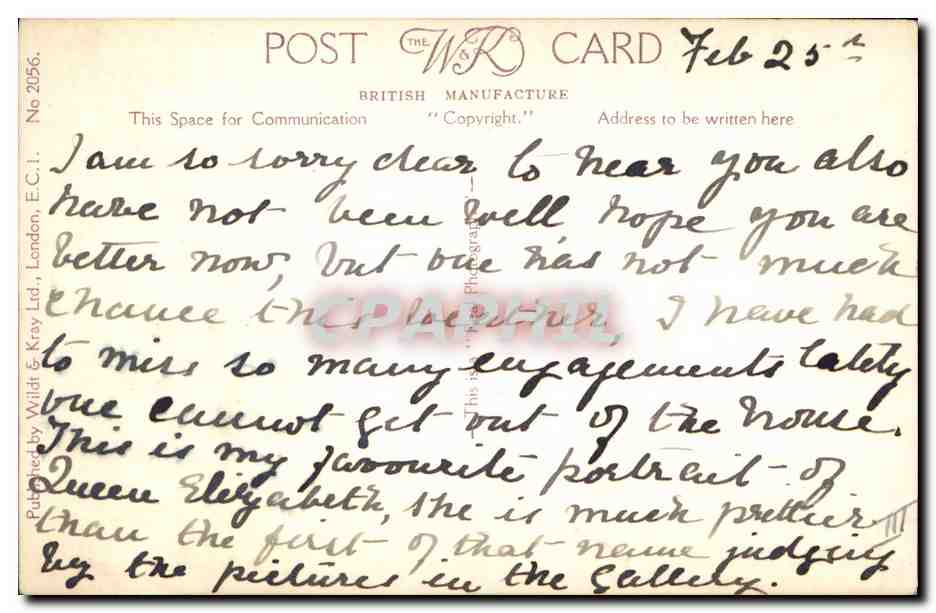 POST THE W&K CARD Feb 25th
BRITISH MANUFACTURE
This Space for Communication "Copyright." Address to be written here
I am so sorry dear to hear you also
have not been well hope you are
better now, but one has not much
chance this weather, I have had
to miss so many engagements lately
one cannot get out of the house.
This is my favourite portrait of
Queen Elizabeth, she is much prettier
than the first of that name judging
by the pictures in the Gallery.
Published by Wildt & Kray Ltd., London, E.C.1. No 2056.
This is a "Real Photograph"
CPAPHIL